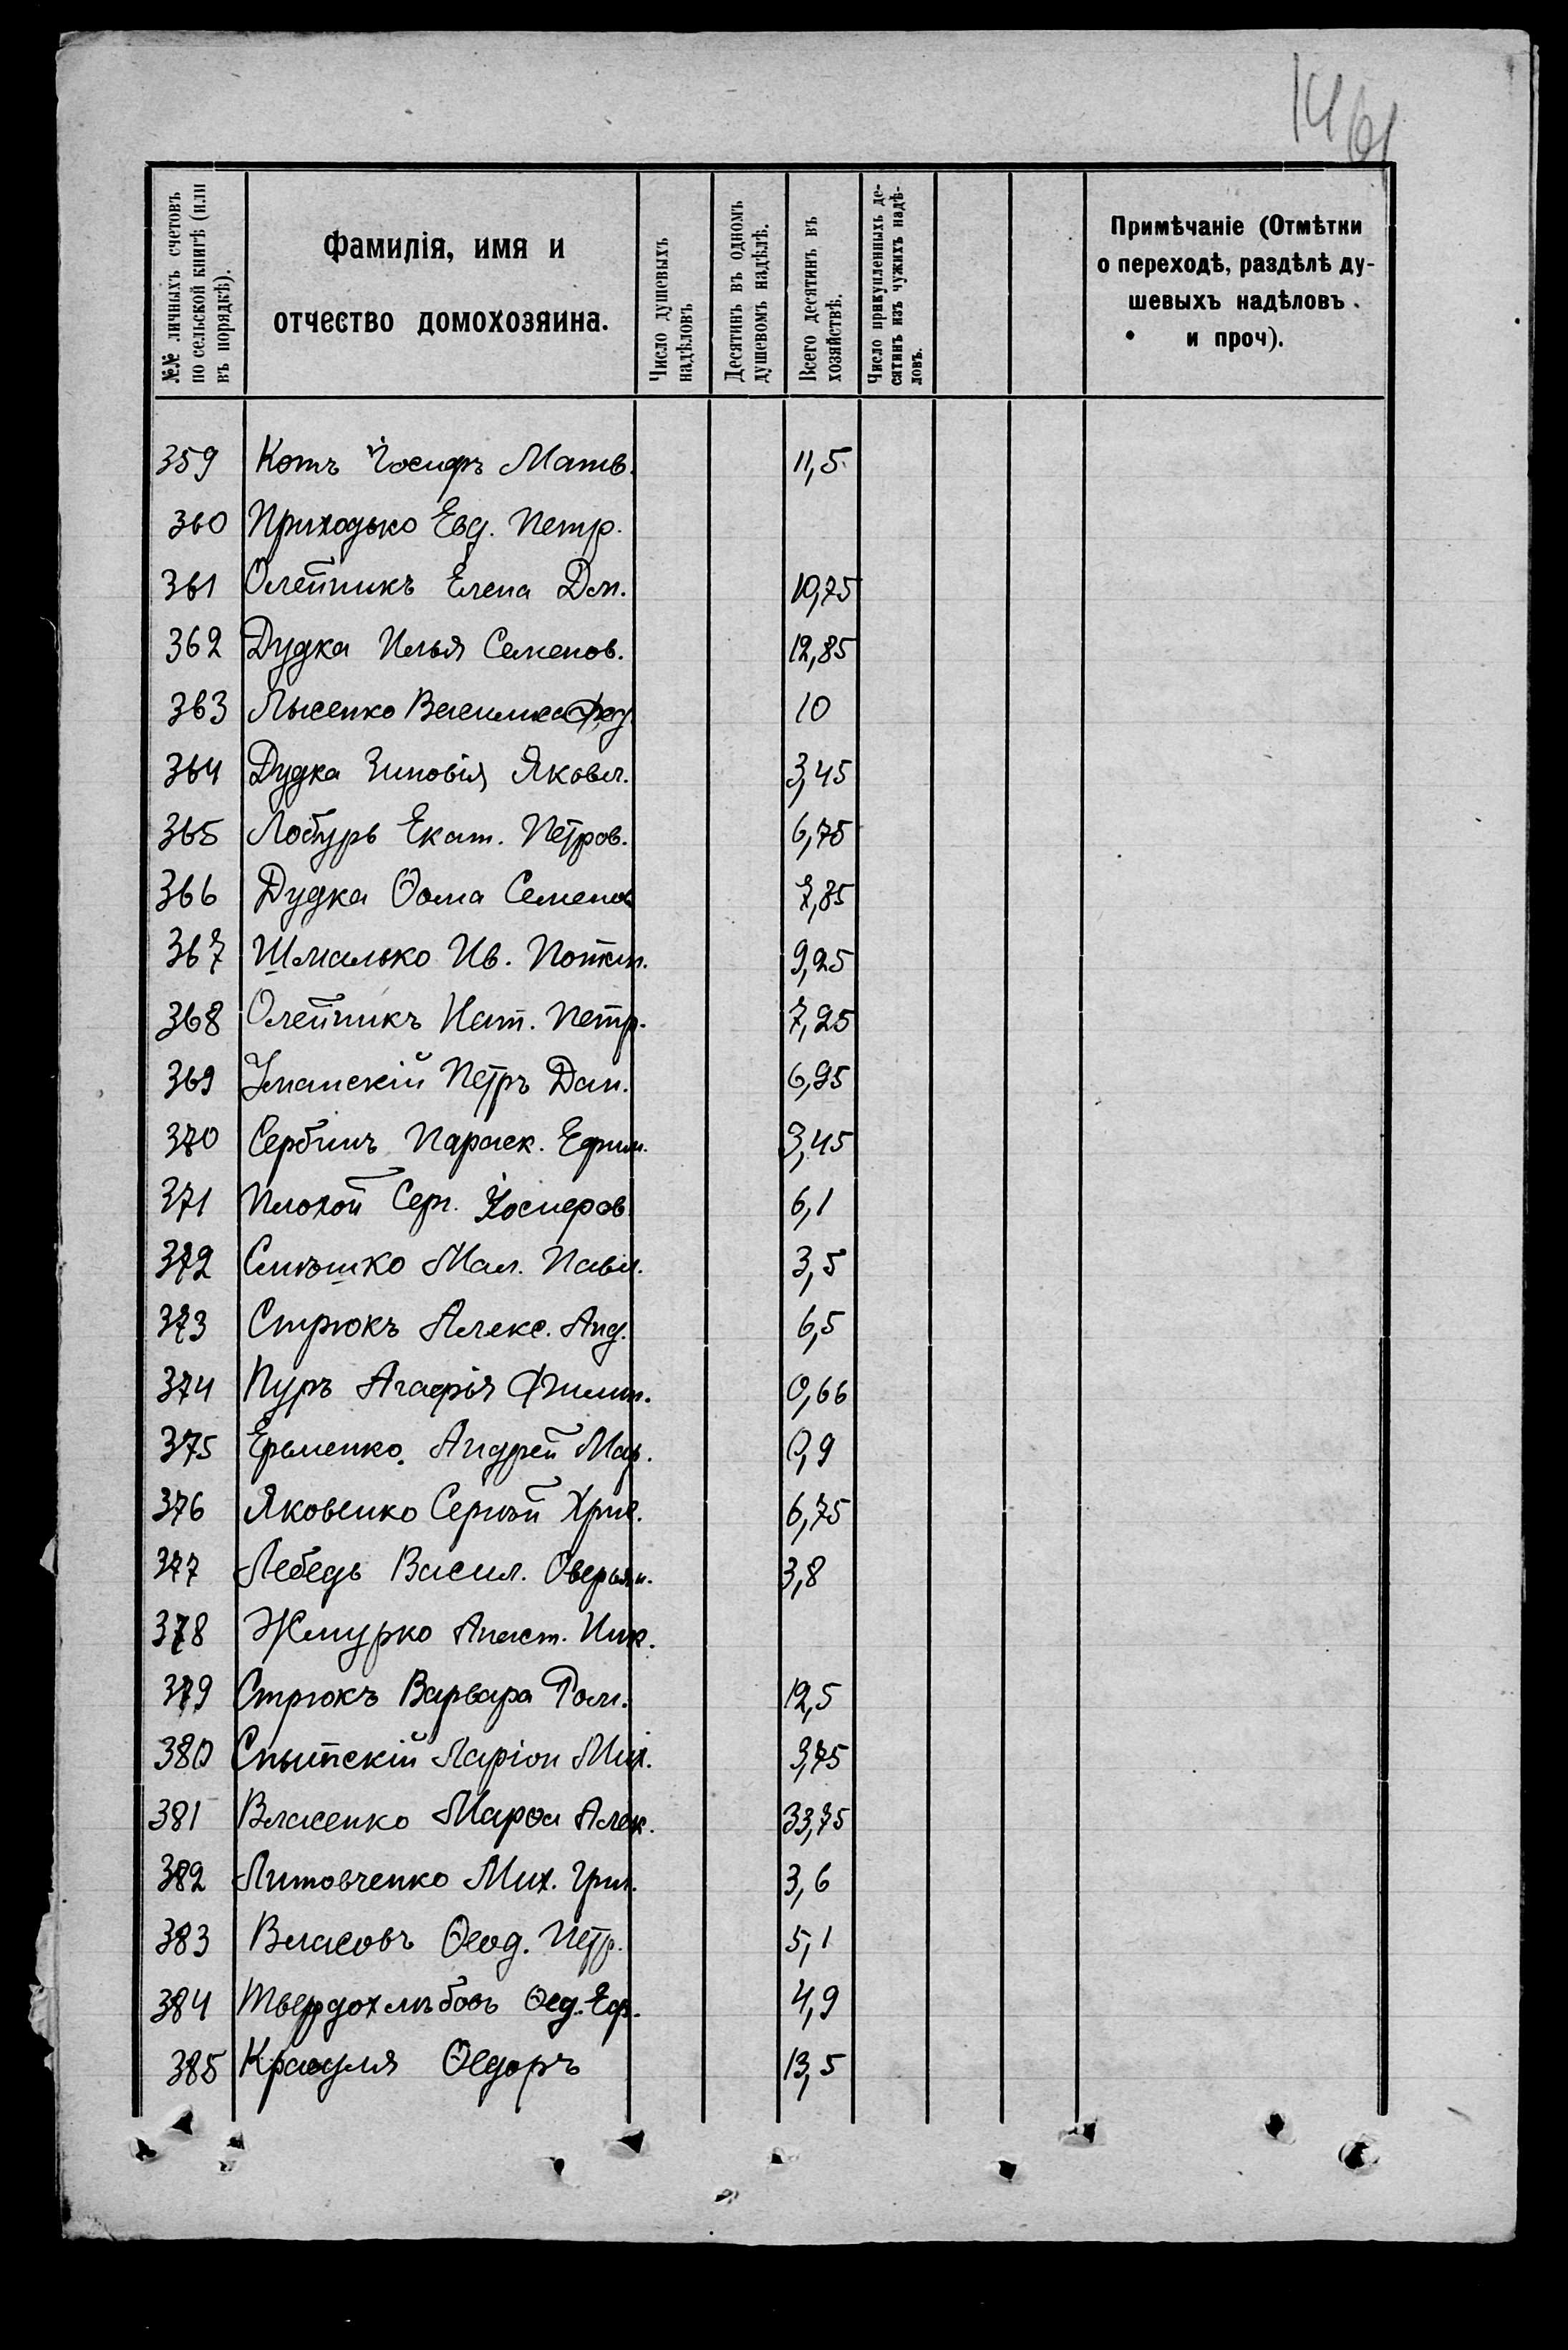 14 61
№№ личныхъ счетовъ
по сельской книгѣ (или
въ порядкѣ).
Фамилія, имя и
отчество домохозяина.
Число душевыхъ
надѣловъ
Десятинъ въ одномъ
душевомъ надѣлѣ.
Всего десятинъ въ
хозяйствѣ.
Число прикупленныхъ де-
сятинъ изъ чужихъ надѣ-
ловъ.
Примѣчаніе (Отмѣтки
о переходѣ, раздѣлѣ ду-
шевыхъ надѣловъ
и проч).
359 Котъ Іосифъ Матв. 11,5
360 Приходько Евд. Петр.
361 Олейникъ Елена Дм. 10,75
362 Дудка Илья Семенов. 12,85
363 Лысенко Василиса Фед. 10
364 Дудка Зиновія Яковл. 3,45
365 Лобурь Екат. Петров. 6,75
366 Дудка Ѳома Семенов 7,85
367 Шмалько Ив. 9,25
368 Олейникъ Нат. Петр. 7,25
369 Уманскій Петръ Дан. 6,95
370 Сербинъ Параск. Ефим. 3,45
371 Плохой Серг. Іосифов 6,1
372 Смѣшко Мал. Павл. 3,5
373 Стрюкъ Алекс. Анд. 6,5
374 Пуръ Агафія Филип. 0,66
375 Ерменко Андрей Мар. 0,9
376 Яковенко Сергѣй Хрис. 6,75
377 Лебедь Васил. Оверьян. 3,8
378 Жмурко Анаст. Ник.
379 Стрюкъ Варвара Гом. 12,5
380 Ларіон Мих. 3,75
381 Власенко Марѳа Алек. 33,75
382 Литовченко Мих. Григ. 3,6
383 Власовъ Ѳеод. Петр. 5,1
384 Твердохлѣбовъ Ѳед. Еф. 4,9
385 Ѳедоръ 13,5